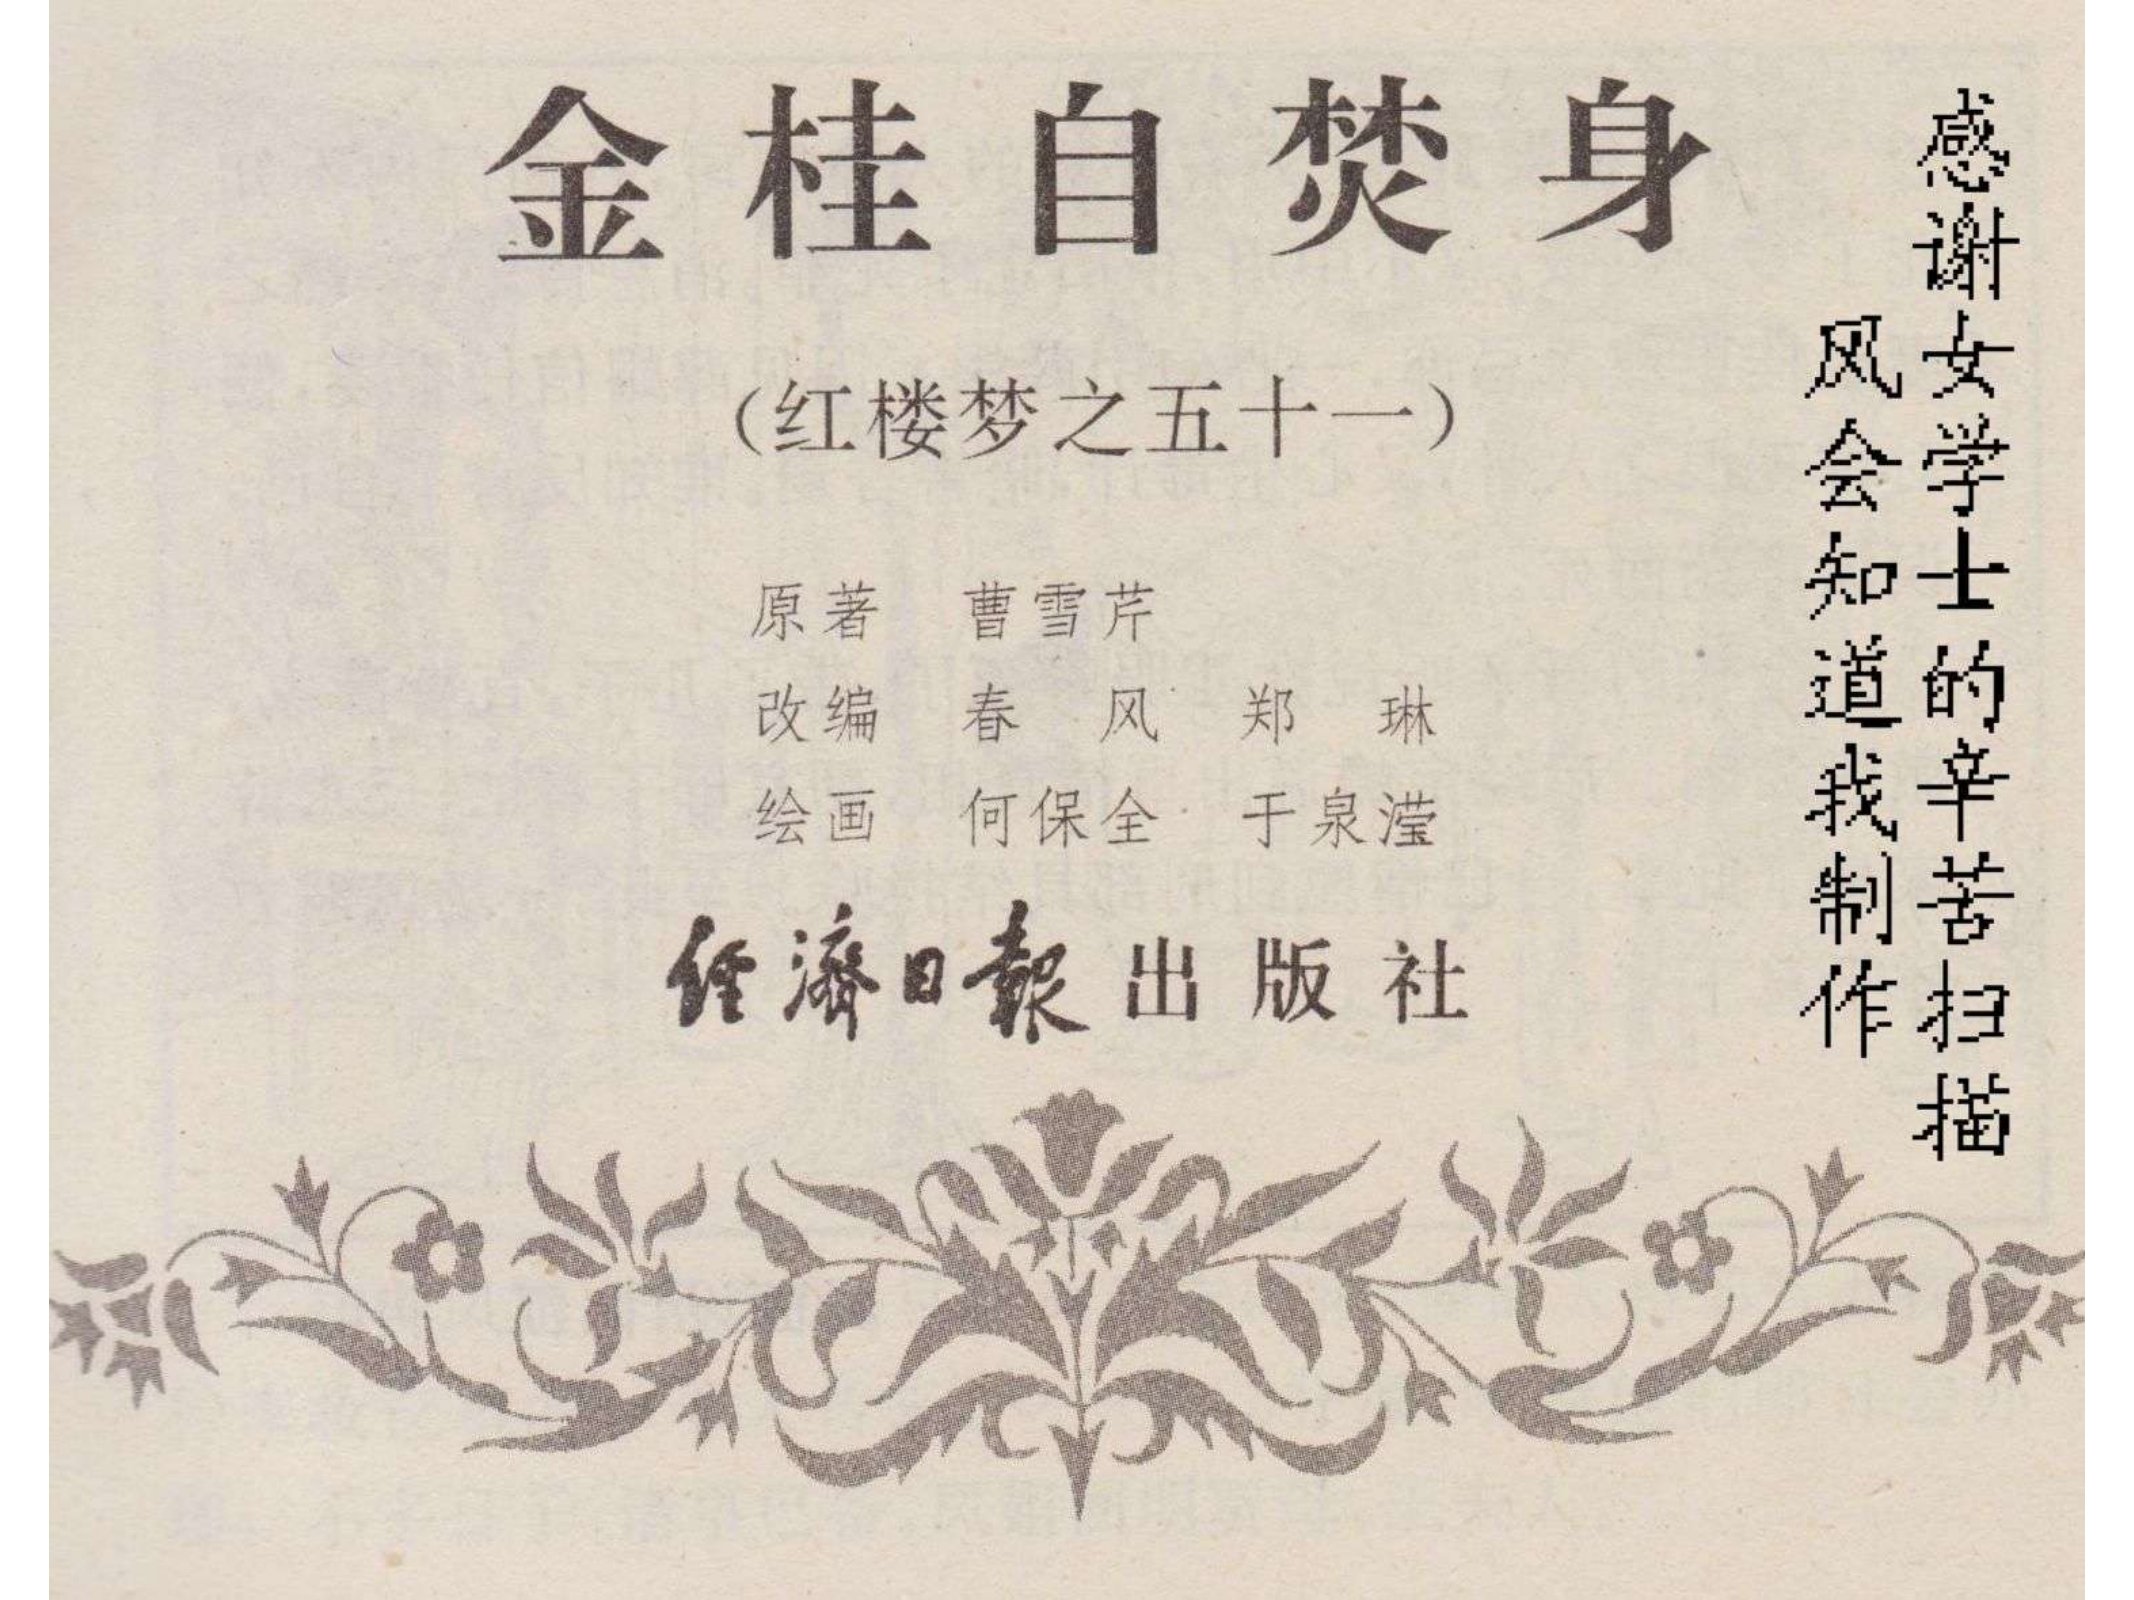 金桂自焚身
（红楼梦之五十一）
原著 曹雪芹
改编 春 风 郑 琳
绘画 何保全 于泉滢
经濟日報出版社
感谢女学士的辛苦扫描
风会知道我制作